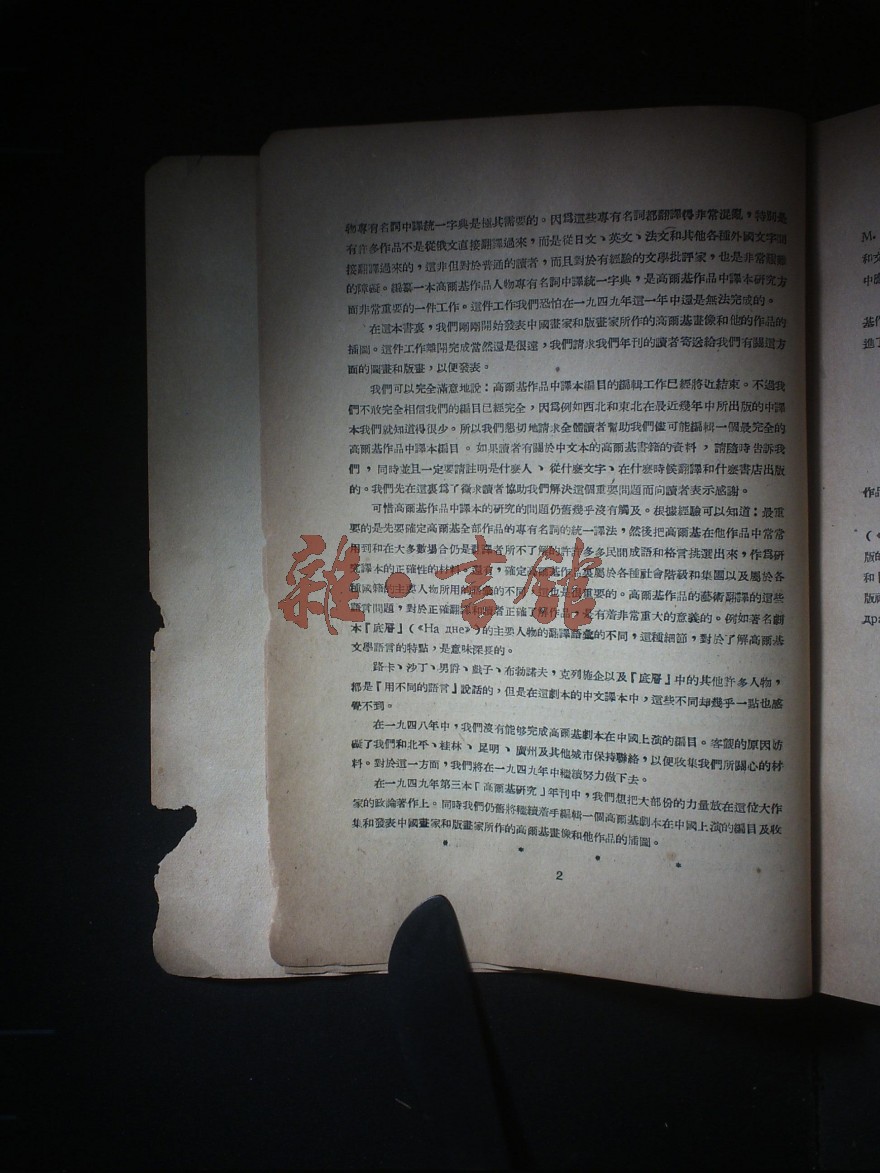 物專有名詞中譯統一字典是極其需要的。因爲這些專有名詞都翻譯得非常混亂，特別是
有許多作品不是從俄文直接翻譯過來，而是從日文、英文、法文和其他各種外國文字間
接翻譯過來的，這非但對於普通的讀者，而且對於有經驗的文學批評家，也是非常艱難
的障礙。編纂一本高爾基作品人物專有名詞中譯統一字典，是高爾基作品中譯本研究方
面非常重要的一件工作。這件工作我們恐怕在一九四九年這一年中還是無法完成的。
在這本書裏，我們剛剛開始發表中國畫家和版畫家所作的高爾基畫像和他的作品的
插圖。這件工作離開完成當然還是很遠，我們請求我們年刊的讀者寄送給我們有關這方
面的圖畫和版畫，以便發表。
我們可以完全滿意地說：高爾基作品中譯本編目的編輯工作已經將近結束。不過我
們不敢完全相信我們的編目已經完全，因爲例如西北和東北在最近幾年中所出版的中譯
本我們就知道得很少。所以我們懇切地請求全體讀者幫助我們儘可能編輯一個最完全的
高爾基作品中譯本編目。如果讀者有關於中文本的高爾基書籍的資料，請隨時告訴我
們，同時並且一定要請註明是什麽人、從什麽文字、在什麽時候翻譯和什麽書店出版
的。我們先在這裏爲了徵求讀者協助我們解決這個重要問題而向讀者表示感謝。
可惜高爾基作品中譯本的研究的問題仍舊幾乎沒有觸及。根據經驗可以知道：最重
要的是先要確定高爾基全部作品的專有名詞的統一譯法，然後把高爾基在他作品中常常
用到和在大多數場合仍是翻譯者所不了解的許許多多民間成語和格言挑選出來，作爲研
究譯本的正確性的材料。還有，確定高爾基作品裏屬於各種社會階級和集團以及屬於各
種國籍的主要人物所用的語彙的不同，這也是很重要的。高爾基作品的藝術翻譯的這些
語言問題，對於正確翻譯和讀者正確了解作品，是有着非常重大的意義的。例如著名劇
本『底層』（«На дне»）的主要人物的翻譯語彙的不同，這種細節，對於了解高爾基
文學語言的特點，是意味深長的。
路卡、沙丁、男爵、戲子、布勃諾夫，克列施企以及『底層』中的其他許多人物，
都是『用不同的語言』說話的，但是在這劇本的中文譯本中，這些不同却幾乎一點也感
覺不到。
在一九四八年中，我們沒有能够完成高爾基劇本在中國上演的編目。客觀的原因妨
礙了我們和北平、桂林、昆明、廣州及其他城市保持聯絡，以便收集我們所關心的材
料。對於這一方面，我們將在一九四九年中繼續努力做下去。
在一九四九年第三本『高爾基研究』年刊中，我們想把大部份的力量放在這位大作
家的政論著作上。同時我們仍舊將繼續着手編輯一個高爾基劇本在中國上演的編目及收
集和發表中國畫家和版畫家所作的高爾基畫像和他作品的插圖。
* * * *
2
M.
和文
中
基作
進了
作品
（«
版的
和
版
дра
雜·書館